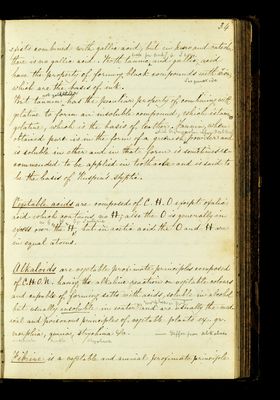 34
spists combined with gallic acid, but in kino and catechu
there is no gallic acid. Both tannic and gallic acid
have the property of forming black compounds with iron,
which are the basis of ink.
But tannic has the peculiar property of combining with
gelatine to form an insoluble compound,
gelatine, which is the basis of leather. Tannin, when
obtained pure is in the form of a greenish powder and
is soluble in ether and in that form is sometimes re-
commended to be applied in toothache and is said to
be the basis of Ruspini's styptic.
Vegetable acids are composed of C. H. O except oxalic
acid which contains no H; also the O is generally in
excess over the H, but in acetic acid the O and H are
in equal atoms.
Alkaloids are vegetable proximate principles composed
of C.H.O.N. having the alkaline reaction on vegetable colours
and capable of forming salts with acids, soluble in alcohol
but usually insoluble in water and are usually the med-
icinal and poisonous principles of vegetable plants ex. gr.
morphia, quinia, strychnia &c. differ from alkalies
Fibrine is a vegetable and animal proximate principle